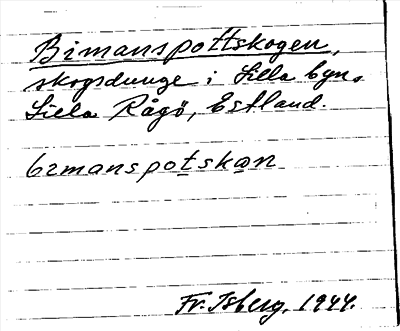 Bimanspottskogen,
skogsdunge i Lilla byn,
Lilla Rågö, Estland.
bımanspotskan
Fr. Isberg, 1944.